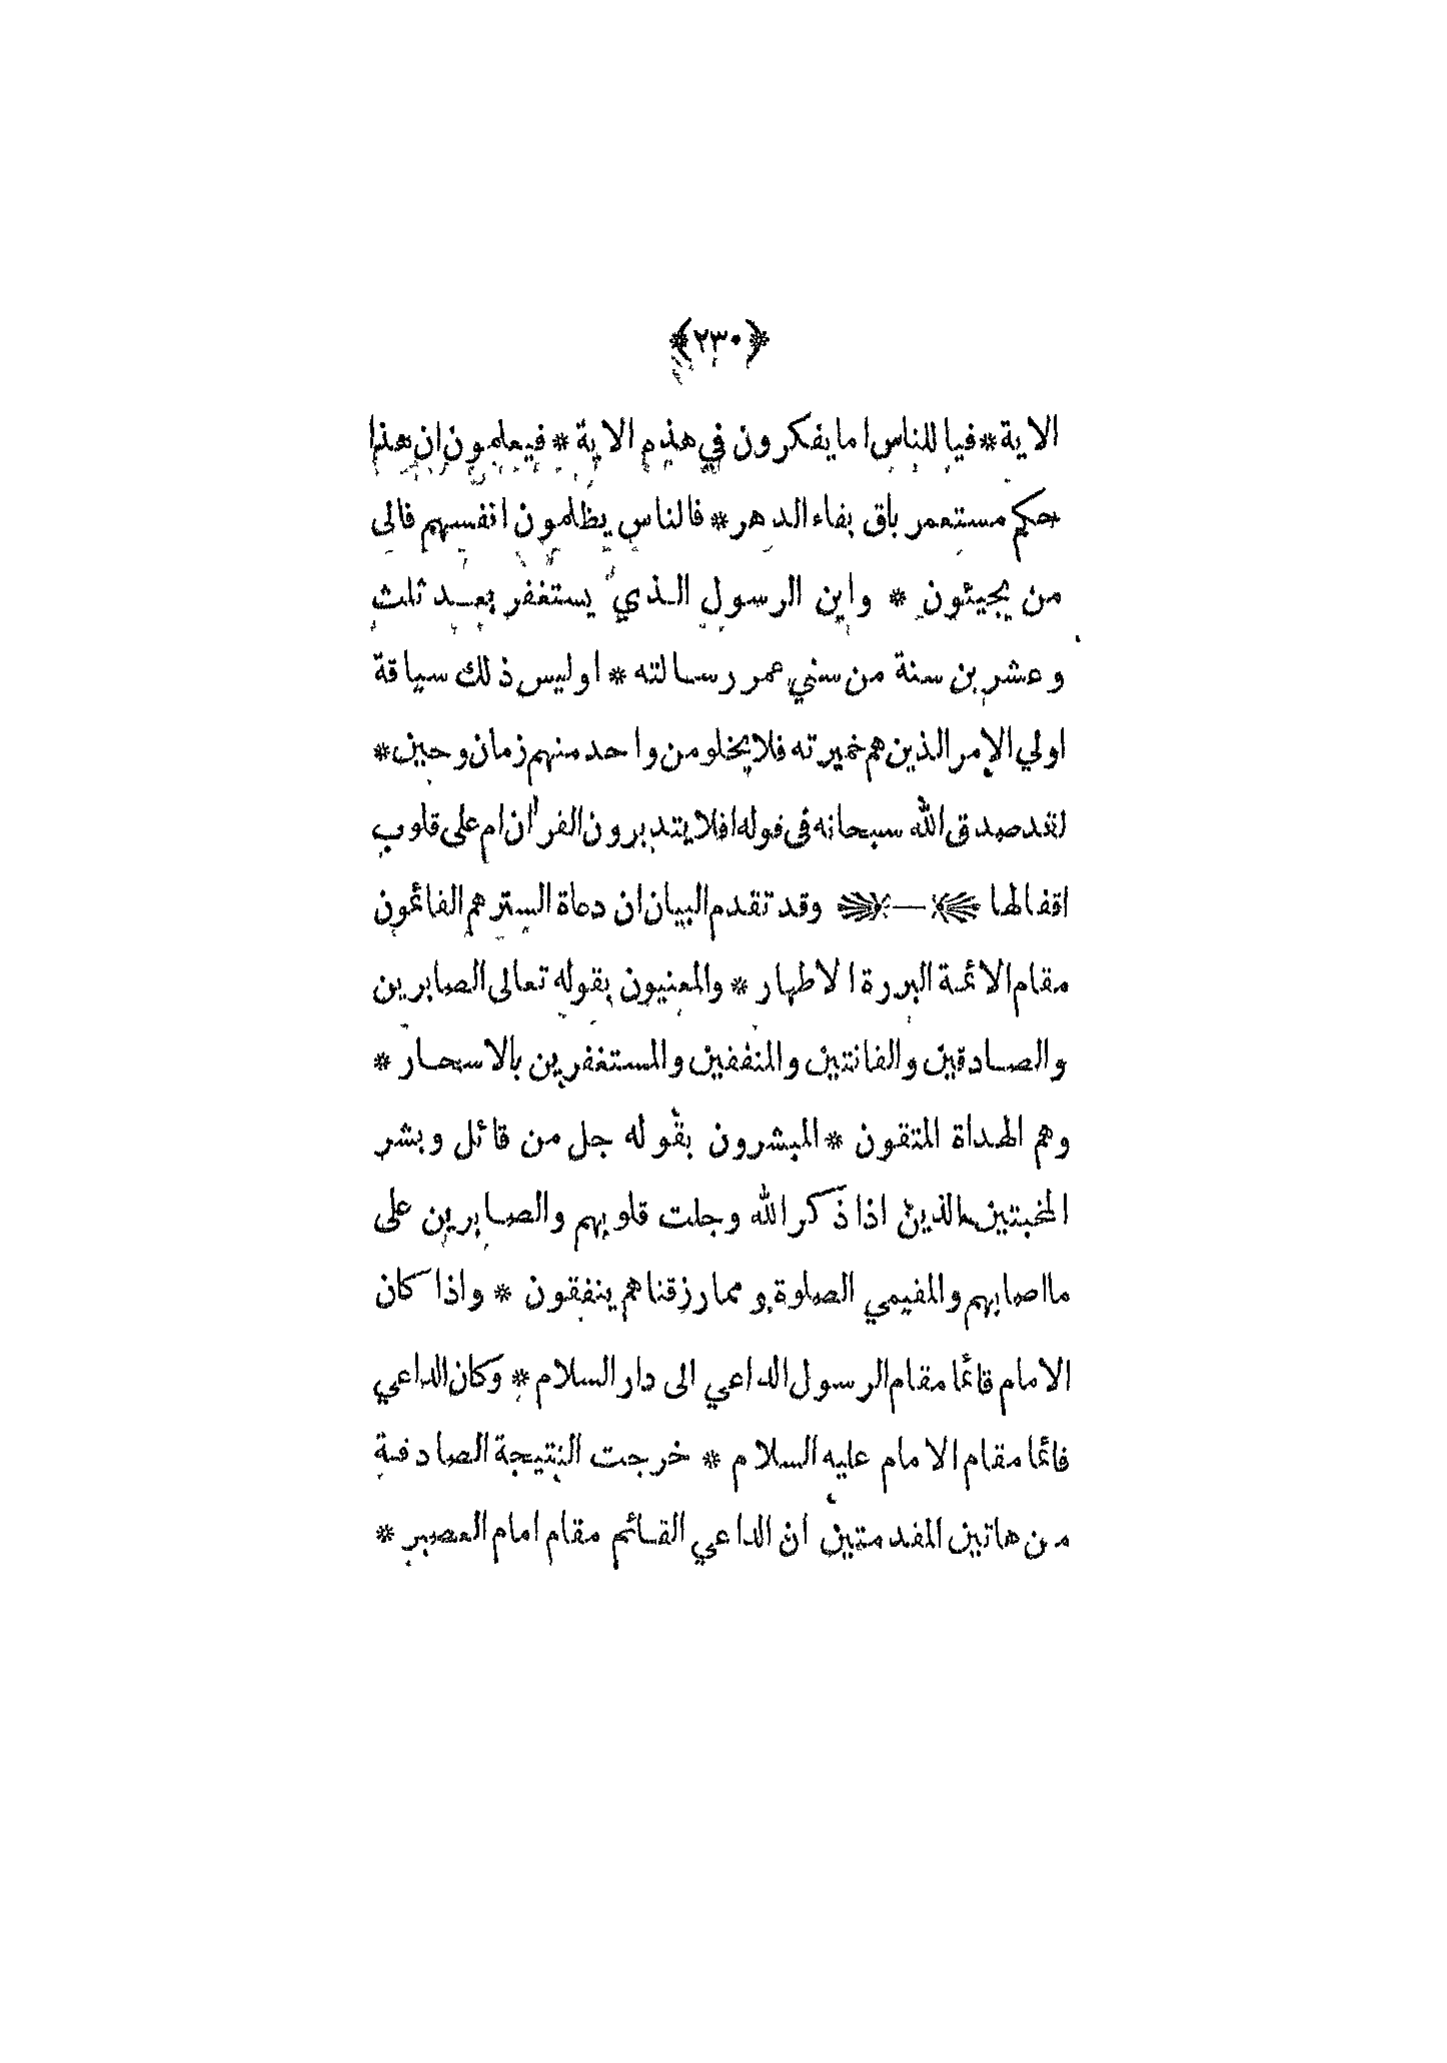 ﴿٢٣٠﴾
الاية * فيا للناس اما يفكرون في هذه الاية * فيعلمون ان هذا
حكم مستعمر باق بقاء الدهر * فالناس يظلمون انفسهم فالى
من يجيئون * واين الرسول الذي يستغفر بعد ثلث
وعشرين سنة من سني عمر رسالته * اوليس ذلك سياقة
اولي الامر الذين هم خميرته فلا يخلو من واحد منهم زمان وحين *
لقد صدق الله سبحانه في قوله افلا يتدبرون القرأن ام على قلوب
اقفالها — وقد تقدم البيان ان دعاة الستر هم القائمون
مقام الائمة البررة الاطهار * والمعنيون بقوله تعالى الصابرين
والصادقين والقانتين والمنفقين والمستغفرين بالاسحار *
وهم الهداة المتقون * المبشرون بقوله جل من قائل وبشر
المخبتين الذين اذا ذكر الله وجلت قلوبهم والصابرين على
ما اصابهم والمقيمي الصلوة ومما رزقناهم ينفقون * واذا كان
الامام قائما مقام الرسول الداعي الى دار السلام * وكان الداعي
قائما مقام الامام عليه السلام * خرجت النتيجة الصادقة
من هاتين المقدمتين ان الداعي القائم مقام امام العصر *